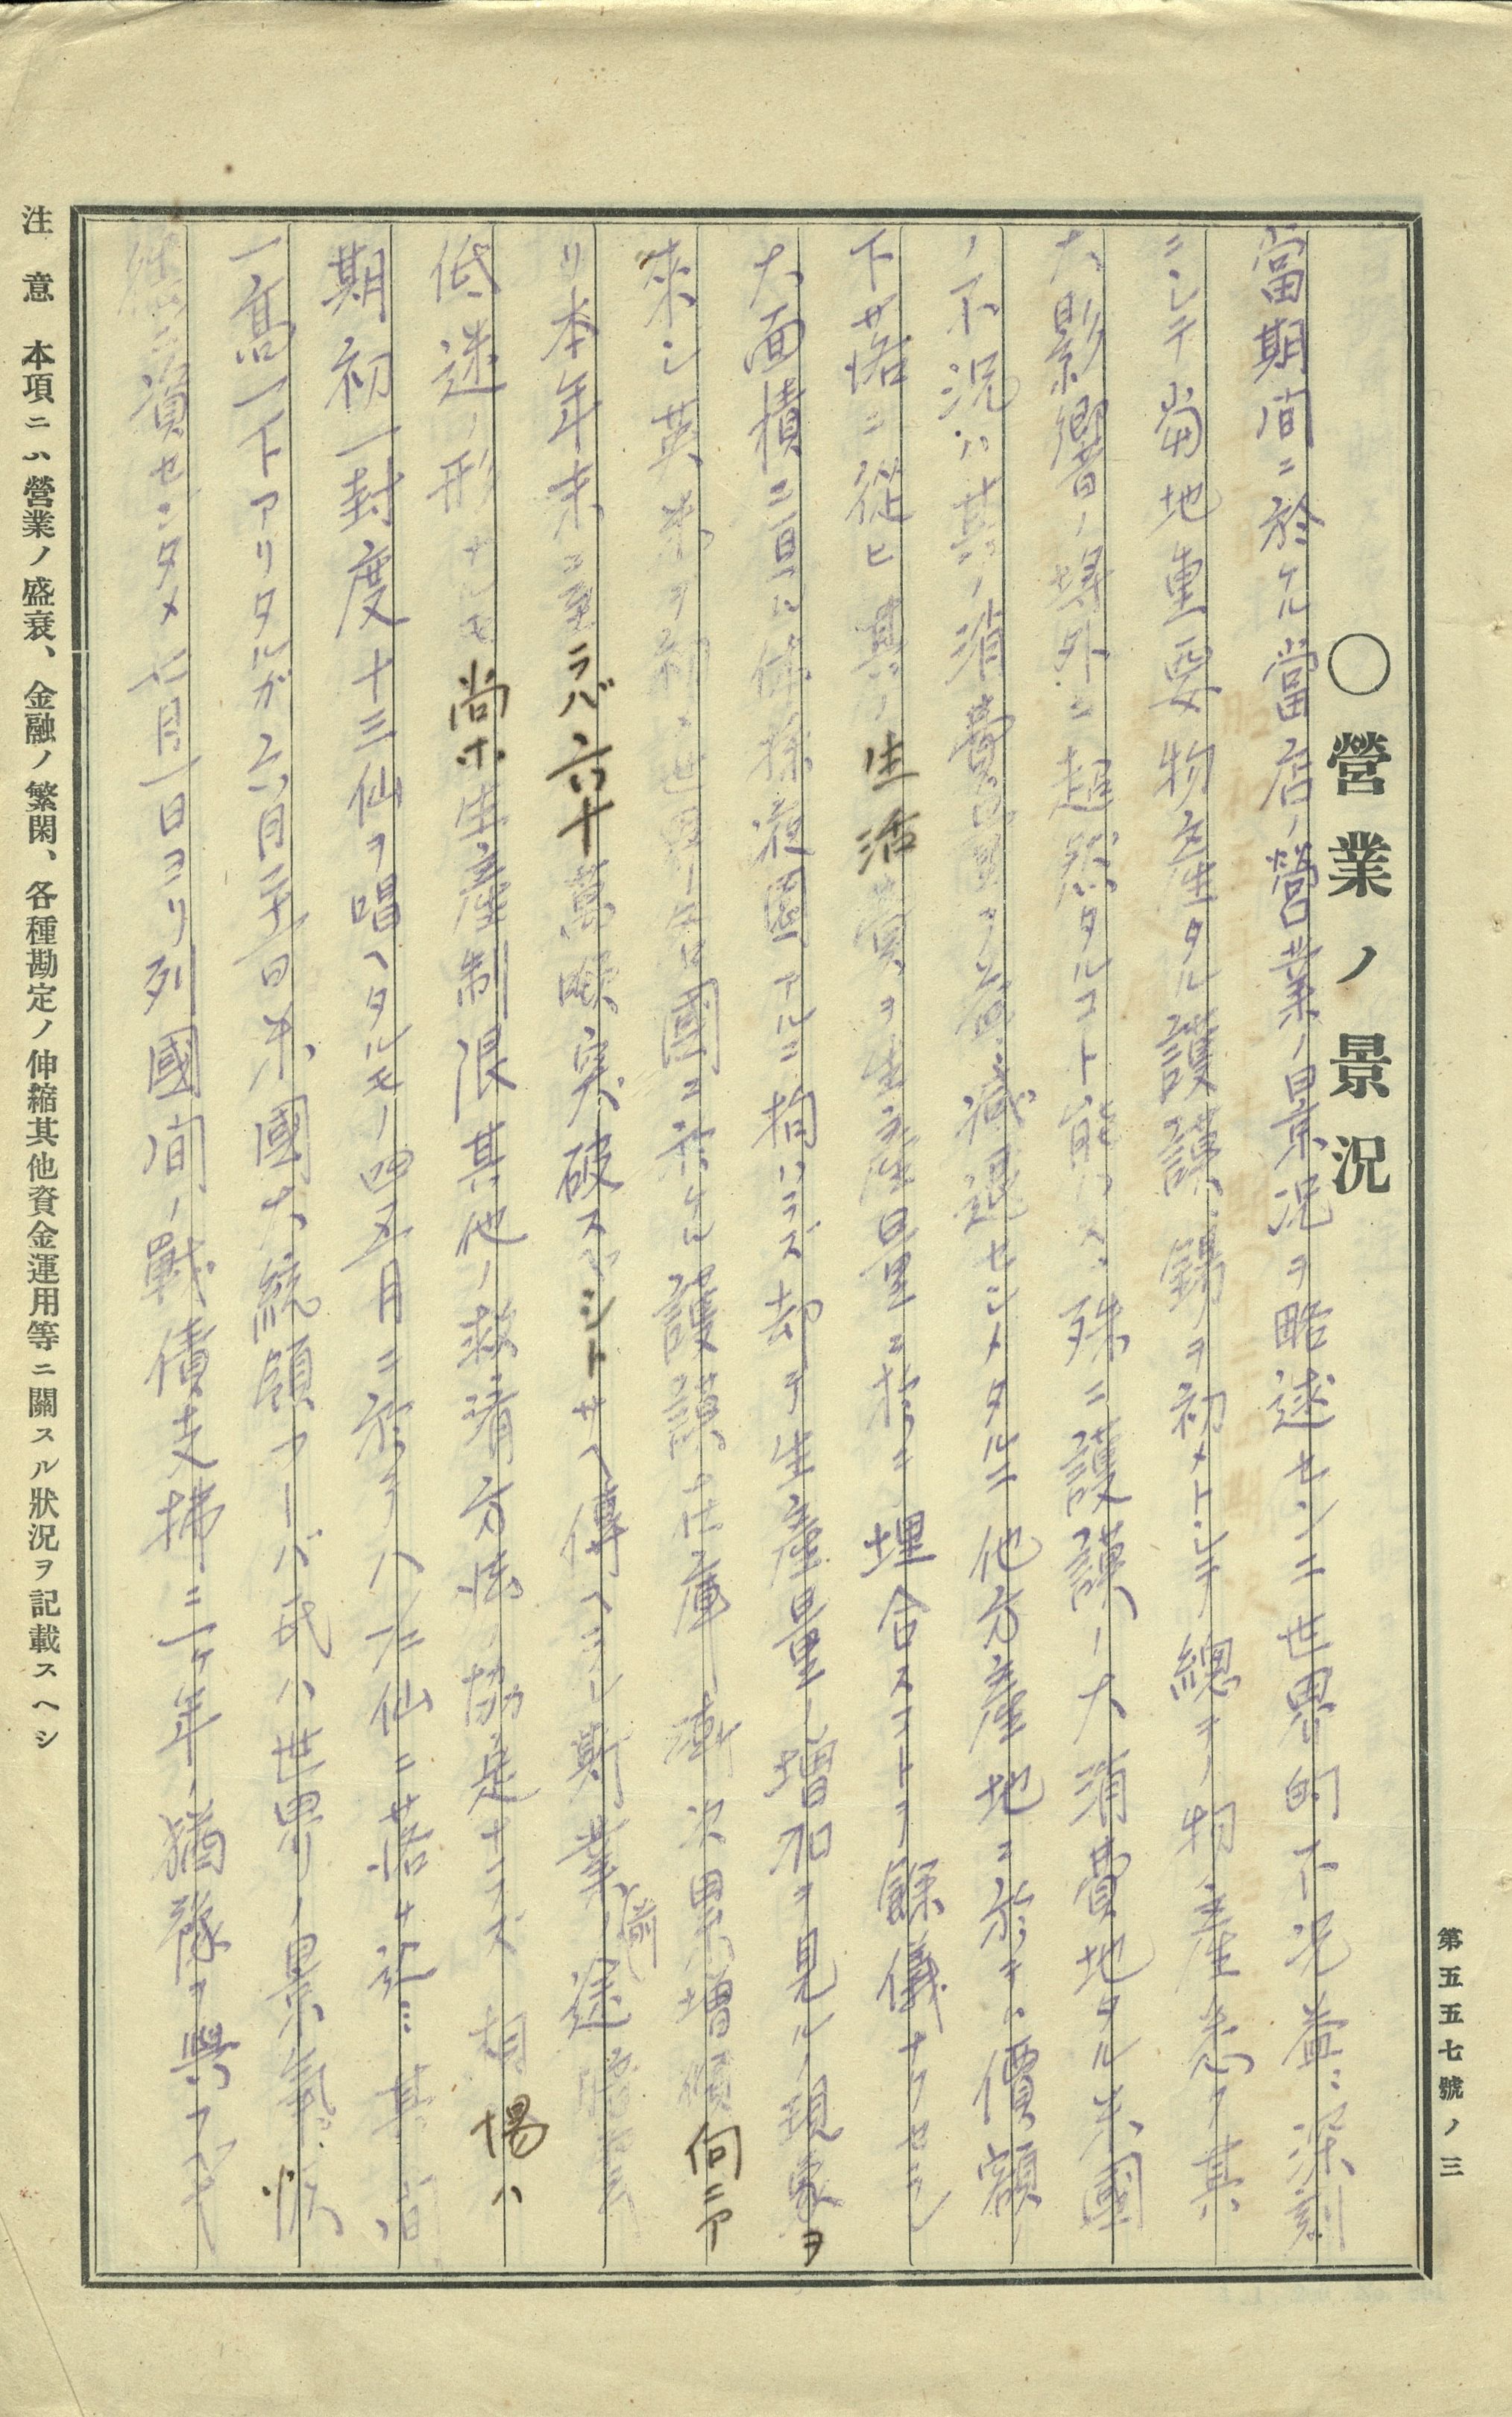 第五五七號ノ三
〇營業ノ景況
當期間ニ於ケル當店ノ營業ノ景況ヲ略述センニ世界的不況益々深刻
ニシテ當地重要物産タル護謨、錫ヲ初メトシテ總テノ物産悉ク其
大影響ノ埒外ニ超然タルコト能ハズ、殊ニ護謨ノ大消費地タル米國
ノ不況ハ其ノ消費量ヲ益々減退セシメタルニ他方産地ニ於テハ價額ノ
下落ニ從ヒ其ノ生活費ヲ生産量ニ於テ埋合スコトヲ餘儀ナクセラレ
大面積ニ亘ル休採液園アルニ拘ハラズ却テ生産量ノ増加ヲ見ルノ現象ヲ
來シ英米ヲ初メ世界各國ニ於ケル護謨在庫漸次累増傾向ニア
リ本年末ニ至ラバ六十萬噸突破スベシトサヘ傳ヘラレ斯業ノ前途
低迷ノ形ナルモ尚ホ生産制限其他ノ救濟方法ノ協定ナラズ相場ハ
期初一封度十三仙ヲ唱ヘタルモノ四五月ニ於テハ仙ニ落サレ其間
一高一下アリタルガ六月二十日米國大統領フーバ氏ハ世界ノ景氣恢
復ニ資センタメ七月一日ヨリ列國間ノ戰債支拂ニ一ケ年ノ猶豫ヲ與フベキ
注意 本項ニハ營業ノ盛衰、金融ノ繁閑、各種勘定ノ伸縮其他資金運用等ニ關スル狀況ヲ記載スヘシ